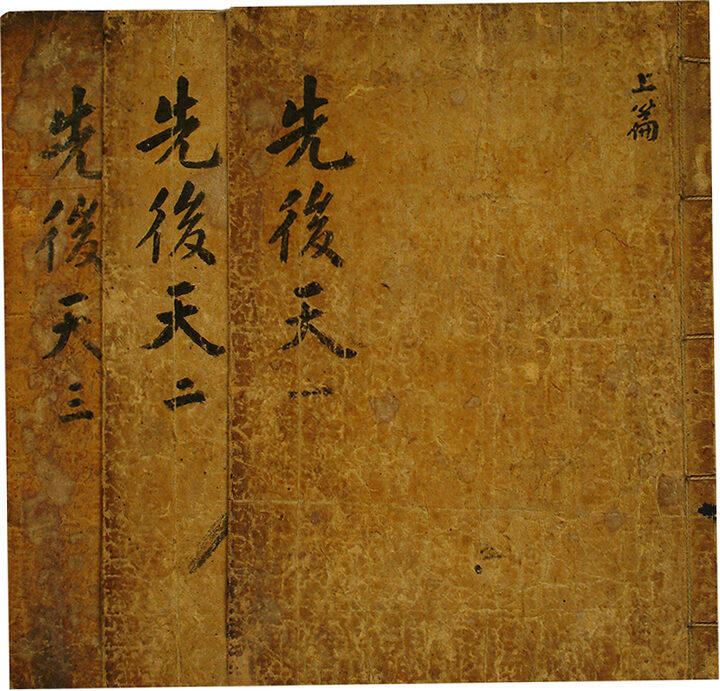 上篇
先後天一
先後天二
先後天三